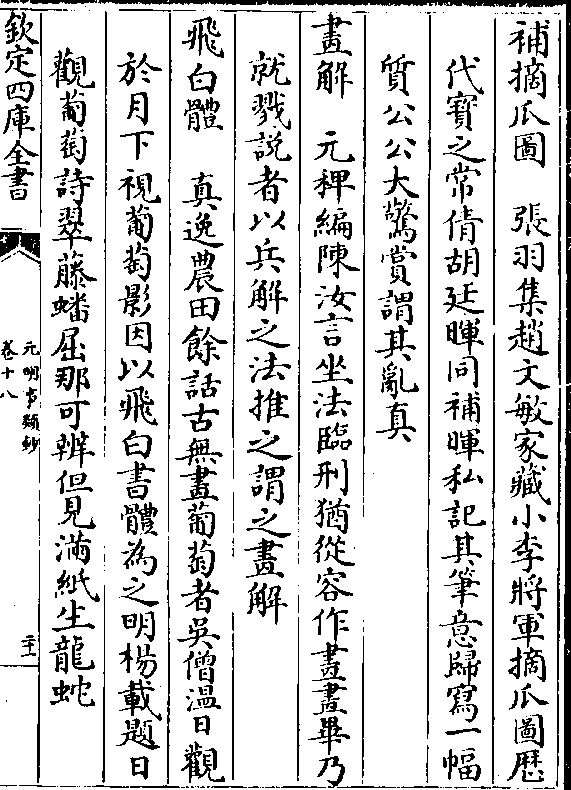 補摘瓜圖　張羽集趙文敏家藏小李將軍摘瓜圖歷
代寶之常倩胡廷暉同補暉私記其筆意歸寫一幅
質公公大驚賞謂其亂真
畫解　元稗編陳汝言坐法臨刑猶從容作畫畫畢乃
就戮説者以兵解之法推之謂之畫解
飛白體　真逸農田餘話古無畫葡萄者吳僧温日觀
於月下視葡萄影因以飛白書體為之明楊載題日
觀葡萄詩翠藤蟠屈那可辨但見滿紙生龍蛇
欽定四庫全書
元明事類鈔
卷十八
二十一